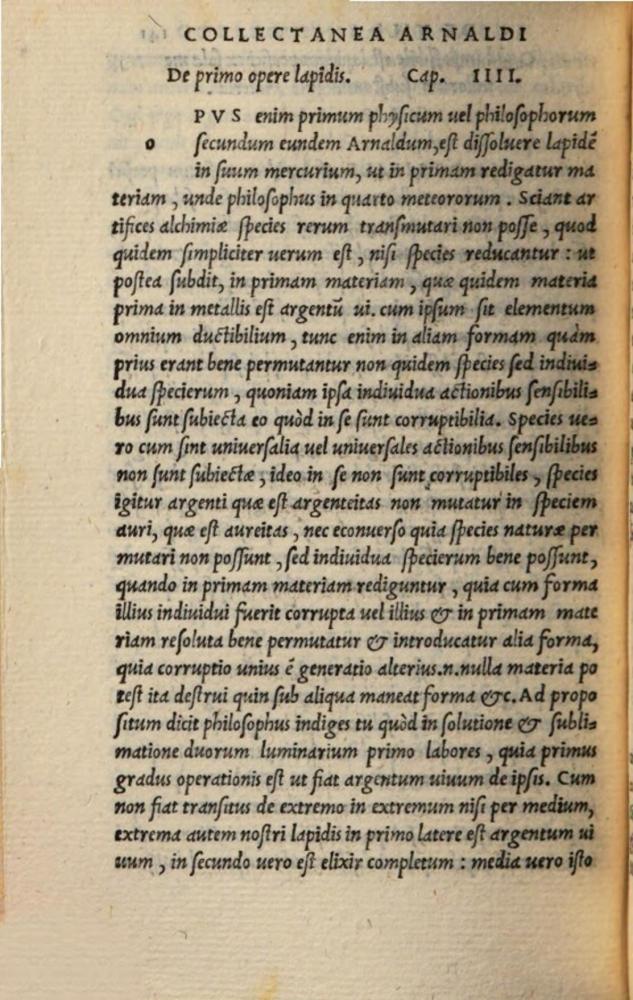 COLLECTANEA ARNALDI
De primo opere lapidis. Cap. IIII.
PVS enim primum physicum uel philosophorum
o secundum eundem Arnaldum, est dissoluere lapidẽ
in suum mercurium, ut in primam redigatur ma
teriam, unde philosophus in quarto meteororum. Sciant ar
tifices alchimiæ species rerum transmutari non posse, quod
quidem simpliciter uerum est, nisi species reducantur: ut
postea subdit, in primam materiam, quæ quidem materia
prima in metallis est argentũ ui. cum ipsum sit elementum
omnium ductibilium, tunc enim in aliam formam quàm
prius erant bene permutantur non quidem species sed indiui⸗
dua specierum, quoniam ipsa indiuidua actionibus sensibili⸗
bus sunt subiecta eo quòd in se sunt corruptibilia. Species ue⸗
ro cum sint uniuersalia uel uniuersales actionibus sensibilibus
non sunt subiectæ, ideo in se non sunt corruptibiles, species
igitur argenti quæ est argenteitas non mutatur in speciem
auri, quæ est aureitas, nec econuerso quia species naturæ per
mutari non possunt, sed indiuidua specierum bene possunt,
quando in primam materiam rediguntur, quia cum forma
illius indiuidui fuerit corrupta uel illius & in primam mate
riam resoluta bene permutatur & introducatur alia forma,
quia corruptio unius ẽ generatio alterius.n.nulla materia po
test ita destrui quin sub aliqua maneat forma &c. Ad propo
situm dicit philosophus indiges tu quòd in solutione & subli⸗
matione duorum luminarium primo labores, quia primus
gradus operationis est ut fiat argentum uiuum de ipsis. Cum
non fiat transitus de extremo in extremum nisi per medium,
extrema autem nostri lapidis in primo latere est argentum ui
uum, in secundo uero est elixir completum: media uero isto